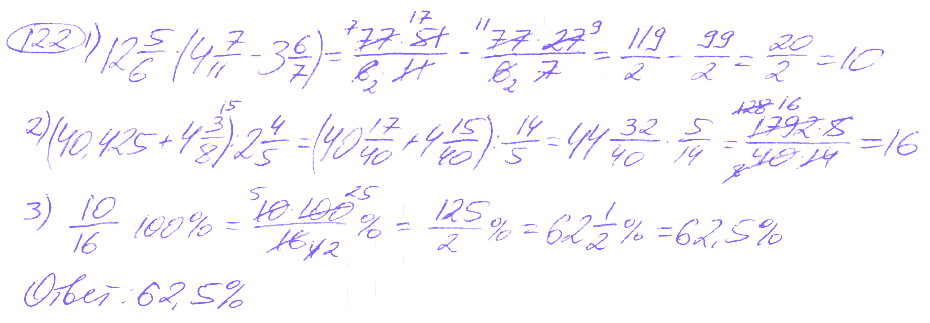 122 1) 12 5/6 · (4 7/11 - 3 6/7) = 77·51/6·11 - 77·27/6·7 = 119/2 - 99/2 = 20/2 = 10
2) (40,425 + 4 3/8) : 2 4/5 = (40 17/40 + 4 15/40) : 14/5 = 44 32/40 · 5/14 = 1792·5/40·14 = 16
3) 10/16 100% = 10·100/16 % = 125/2 % = 62 1/2 % = 62,5%
Ответ: 62,5%